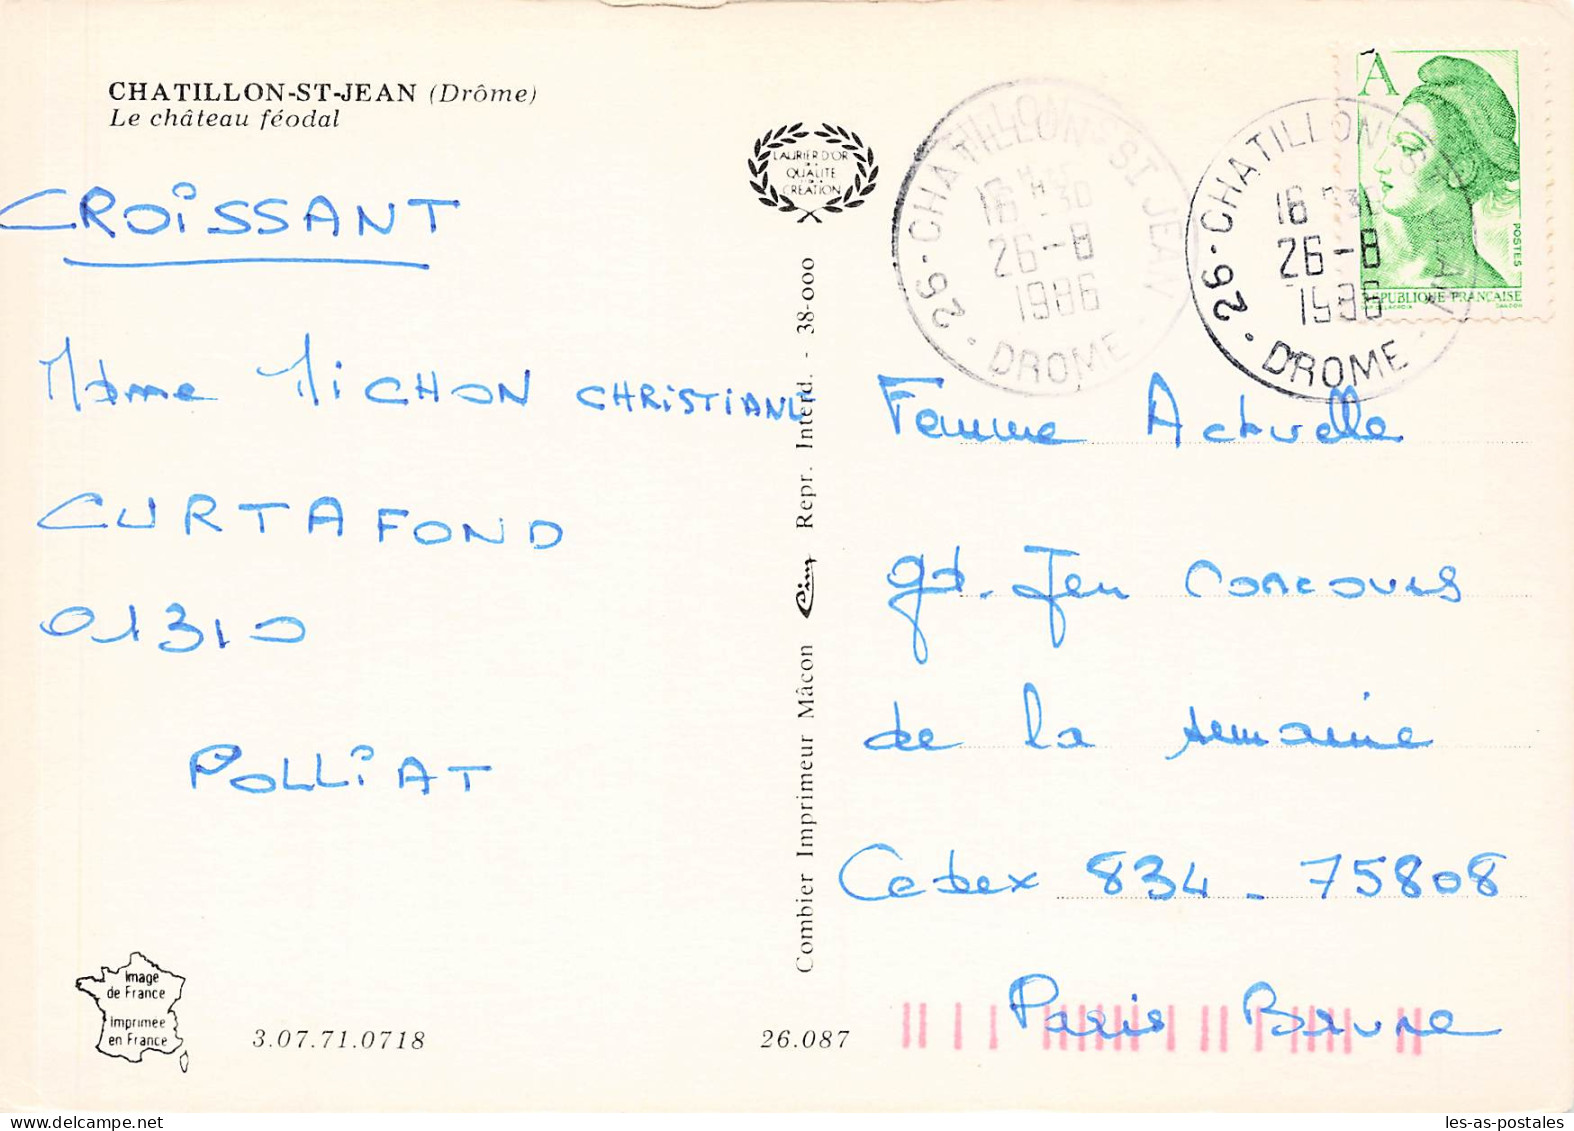 CHATILLON-ST-JEAN (Drôme)
Le château féodal
CROISSANT
Mdme MICHON CHRISTIANE
CURTAFOND
01310
POLLIAT
Image
de France
imprimée
en France
3.07.71.0718
26.087
LAURIER D'OR
DE LA
QUALITÉ
CRÉATION
Combier Imprimeur Mâcon Cim Repr. Interd. - 38-000
26 - CHATILLON ST JEAN
16 H 30
26-8
1986
DROME
26 - CHATILLON ST JEAN
16 H 30
26-8
1986
DROME
A
POSTES
REPUBLIQUE FRANÇAISE
DELACROIX GANDON
Femme Actuelle
gd. Jeu concours
de la semaine
Cedex 834 - 75808
Paris Brune
les-as-postales.com